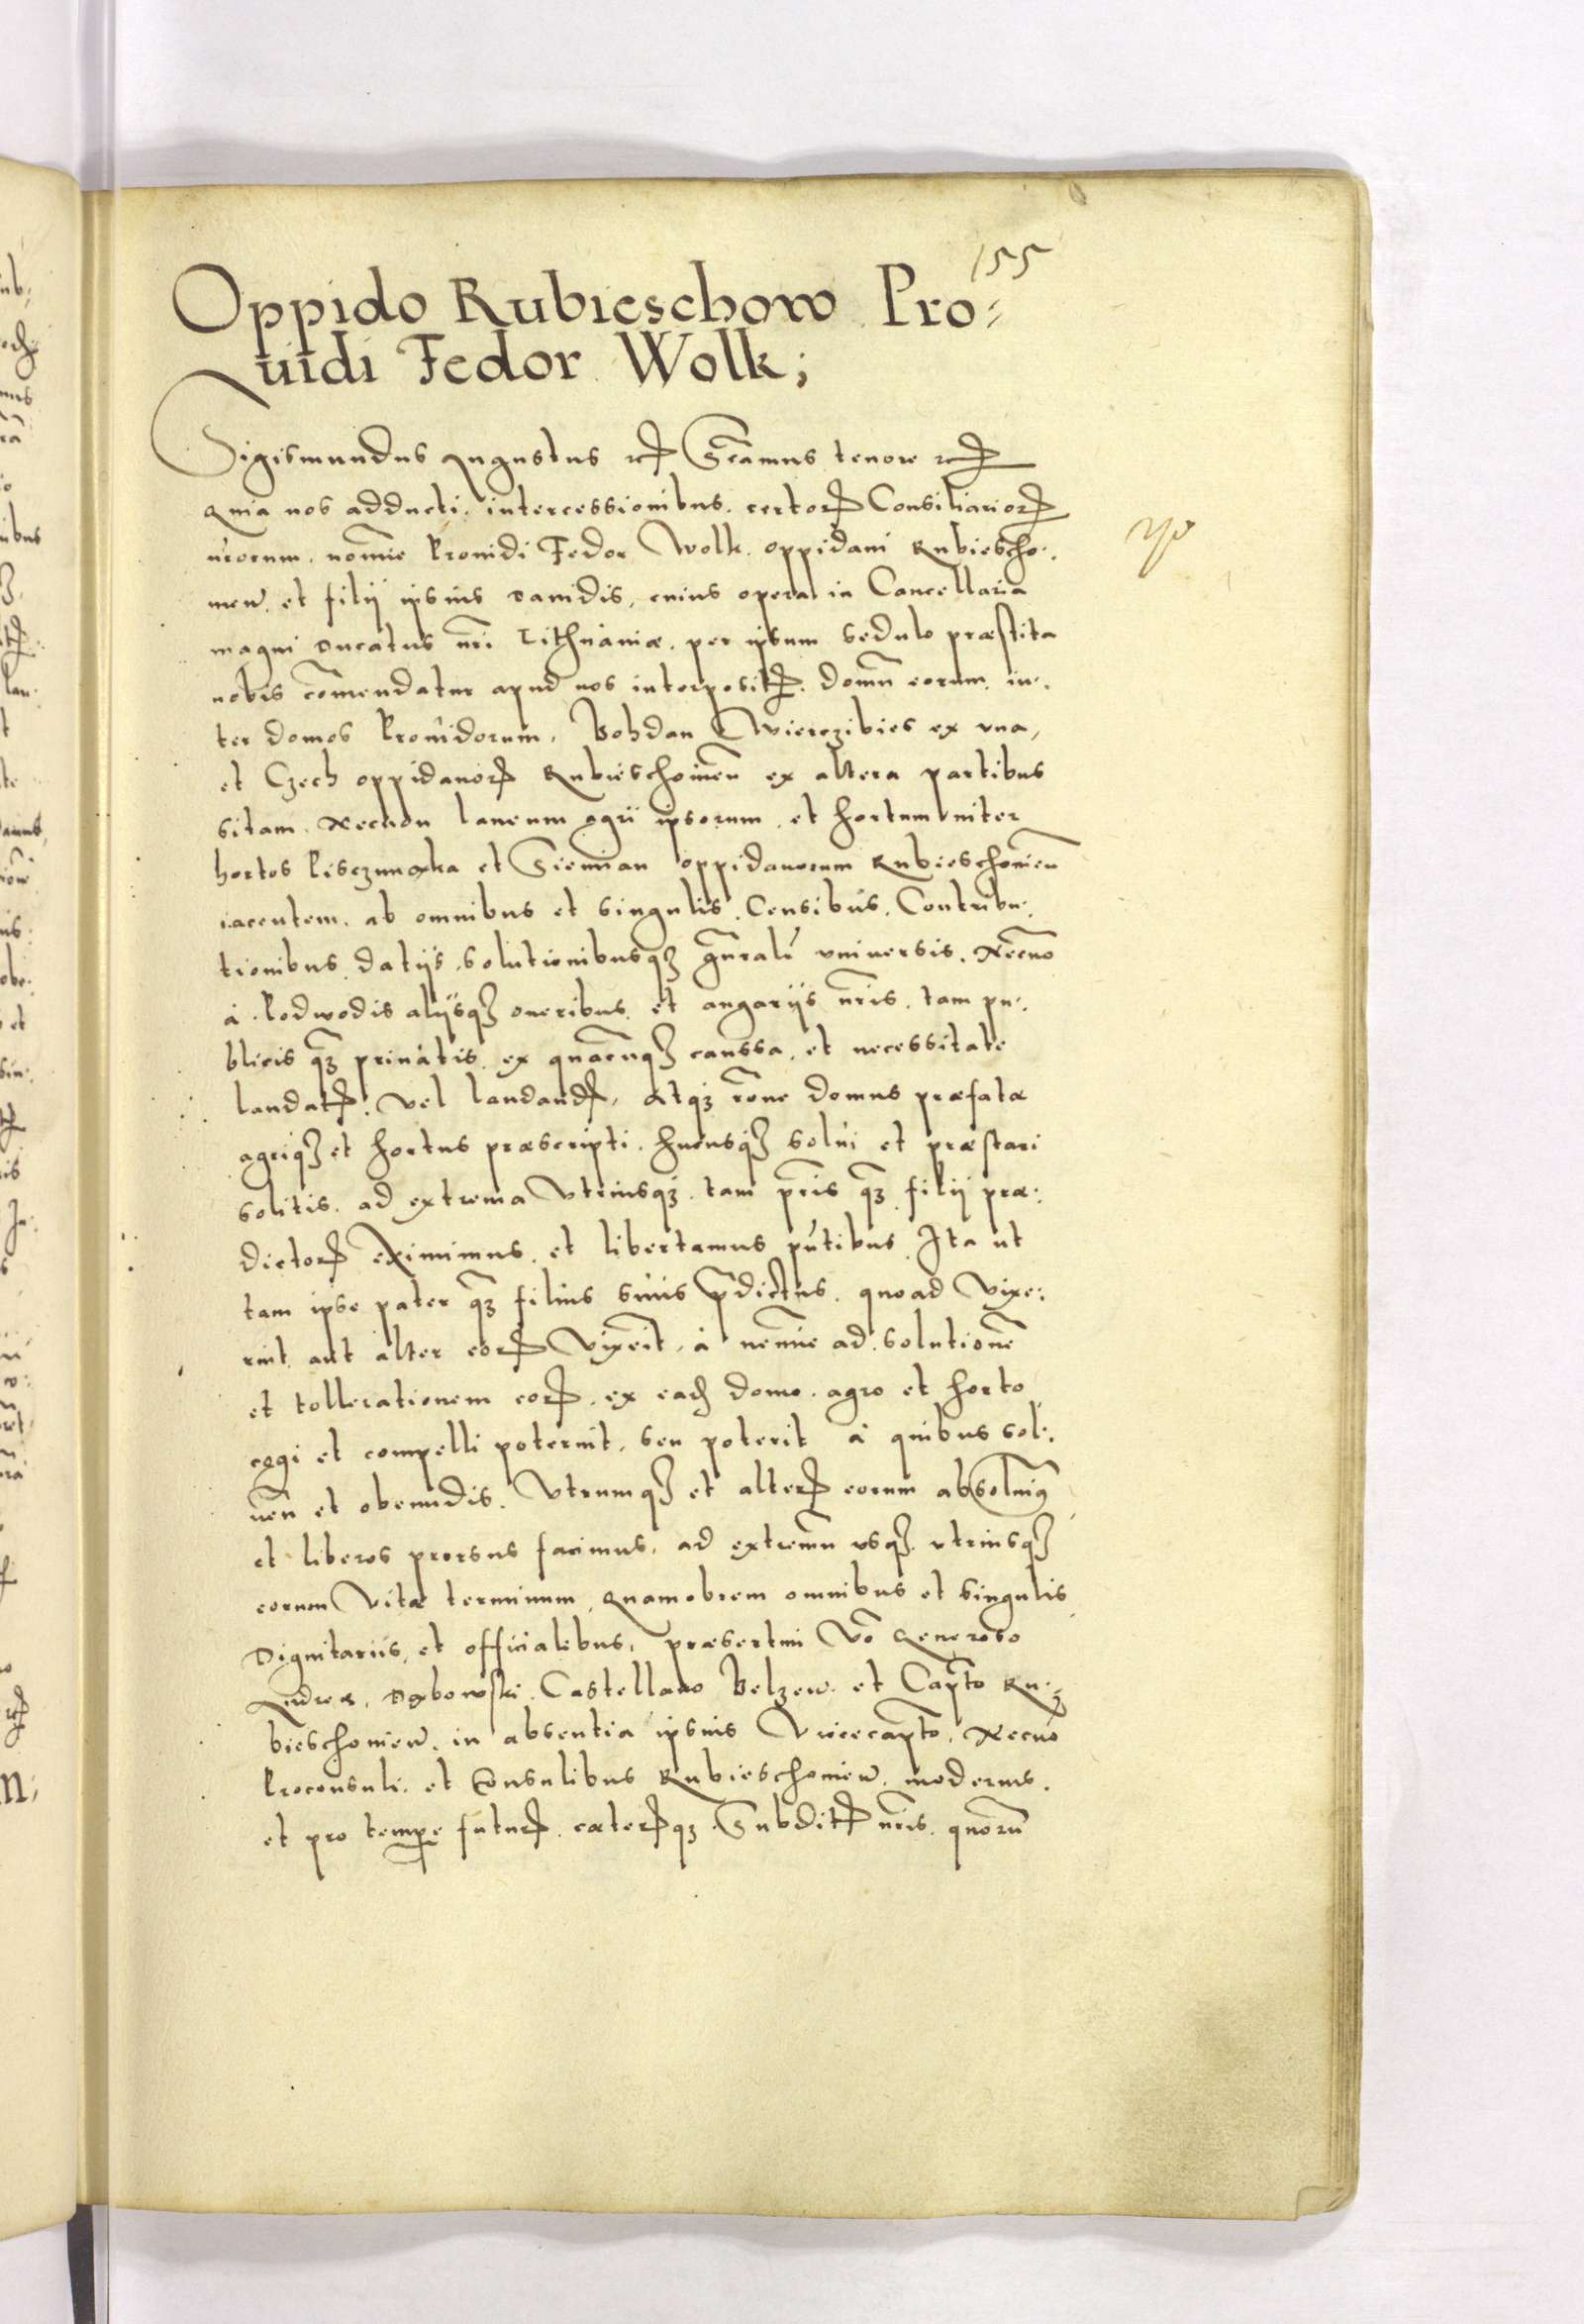 155
Oppido Rubieschow Pro⸗
uidi Fedor Wolk;
Sigismundus Augustus etc̃ Sc̃amus tenore etc̃
Quia nos adducti intercessionibus certorꝝ Consiliariorꝝ
nr̃orum. nomĩe Prouidi Fedor Wolk oppidani Rubiescho:
uien̄. et filij ipsius Dauidis, cuius opera in Cancellaria
magni Ducatus nr̃i Lithuaniæ. per ipsum sedulo præstita
nobis cõmendatur apud nos interpositꝝ. domũ eorum in:
ter domos Prouidorum, Bohdan Wierczibies ex vna,
et Czech oppidanorꝝ Rubieschouien̄ ex altera partibus
sitam. Necnon laneum agri ipsorum. et hortum inter
hortos Pisczimąka et Siemian oppidanorum Rubieschouien̄
iacentem. ab omnibus et singulis. Censibus. Contribu:
tionibus datijs. solutionibusqȝ gñralr̃ vniuersis. Necno
à Podwodis alijsqȝ oneribus et angarijs nr̃is. tam pu:
blicis qȝ priuatis. ex quacũqȝ caussa. et necessitate
laudatꝝ. vel laudandꝝ, Atqȝ rõne domus præfatæ
agriqȝ et hortus præscripti. hucusqȝ solui et præstari
solitis. ad extrema vtriusqȝ. tam pr̃is qȝ filij præ:
dictorꝝ eximimus. et libertamus pñtibus. Ita ut
tam ipse pater qȝ filius suus p̃dictus. quoad vixe:
rint aut alter eorꝝ vixerit, à nemĩe ad solutionẽ
et tollerationem eorꝝ. ex eadȝ domo. agro et horto
cogi et compelli poterint, seu poterit à quibus sol:
uẽn et obeundis. Vtrumqȝ et alterꝝ eorum absoluimꝰ
et liberos prorsus facimus. ad extremũ vsqȝ vtriusqȝ
eorum vitæ terminum. Quamobrem omnibus et singulis
Dignitarijs, et officialibus, præsertim vo Generoso
Andreæ Dąbowski. Castellano Belzen̄. et Capt̃o Ru⸗
bieschouien̄. in absentia ipsius Vicecapt̃o. Necno
Proconsuli. et Consulibus Rubieschouien̄. modernis.
et pro tempe futurꝝ. cæterꝝqȝ Subditꝝ nr̃is. quorũ